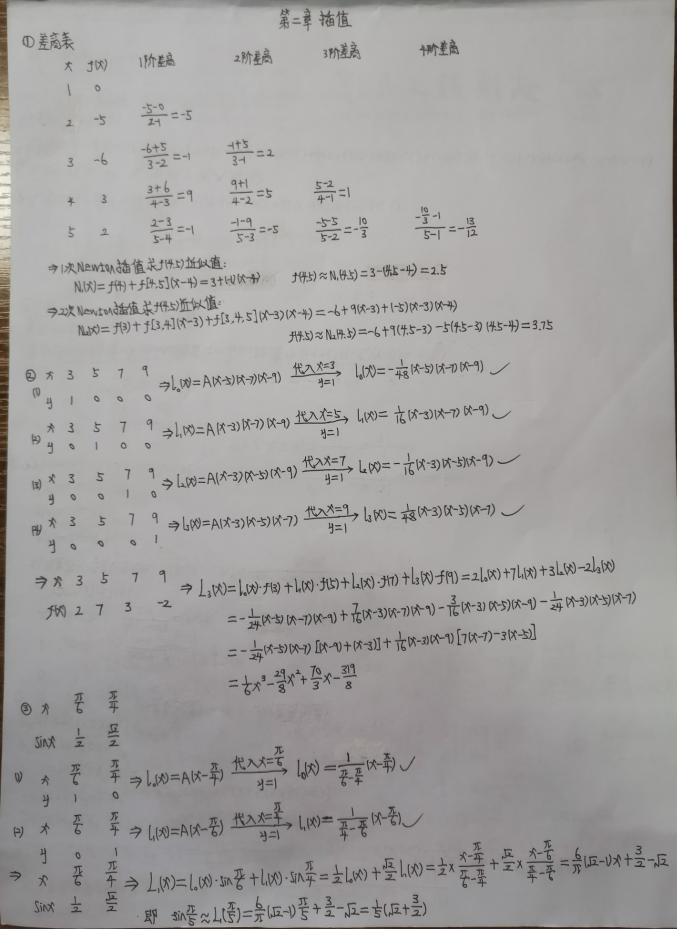 第二章 插值
① 差商表
x f(x) 1阶差商 2阶差商 3阶差商 4阶差商
1 0
2 -5 (-5-0)/(2-1)=-5
3 -6 (-6+5)/(3-2)=-1 (-1+5)/(3-1)=2
4 3 (3+6)/(4-3)=9 (9+1)/(4-2)=5 (5-2)/(4-1)=1
5 2 (2-3)/(5-4)=-1 (-1-9)/(5-3)=-5 (-5-5)/(5-2)=-10/3 (-10/3-1)/(5-1)=-13/12
⇒1次Newton插值求f(4.5)近似值:
N₁(x)=f(4)+f[4,5](x-4)=3+(-1)(x-4) f(4.5)≈N₁(4.5)=3-(4.5-4)=2.5
⇒2次Newton插值求f(4.5)近似值:
N₂(x)=f(3)+f[3,4](x-3)+f[3,4,5](x-3)(x-4)=-6+9(x-3)+(-5)(x-3)(x-4)
f(4.5)≈N₂(4.5)=-6+9(4.5-3)-5(4.5-3)(4.5-4)=3.75
② x 3 5 7 9 ⇒l₀(x)=A(x-5)(x-7)(x-9) 代入x=3 y=1 → l₀(x)=-1/48(x-5)(x-7)(x-9) ✓
(1) y 1 0 0 0
x 3 5 7 9 ⇒l₁(x)=A(x-3)(x-7)(x-9) 代入x=5 y=1 → l₁(x)=1/16(x-3)(x-7)(x-9) ✓
(二) y 0 1 0 0
x 3 5 7 9 ⇒l₂(x)=A(x-3)(x-5)(x-9) 代入x=7 y=1 → l₂(x)=-1/16(x-3)(x-5)(x-9) ✓
(三) y 0 0 1 0
x 3 5 7 9 ⇒l₃(x)=A(x-3)(x-5)(x-7) 代入x=9 y=1 → l₃(x)=1/48(x-3)(x-5)(x-7) ✓
(四) y 0 0 0 1
⇒ x 3 5 7 9 ⇒ L₃(x)=l₀(x)·f(3)+l₁(x)·f(5)+l₂(x)·f(7)+l₃(x)·f(9)=2l₀(x)+7l₁(x)+3l₂(x)-2l₃(x)
f(x) 2 7 3 -2
=-1/24(x-5)(x-7)(x-9)+7/16(x-3)(x-7)(x-9)-3/16(x-3)(x-5)(x-9)-1/24(x-3)(x-5)(x-7)
=-1/24(x-5)(x-7)[(x-9)+(x-3)]+1/16(x-3)(x-9)[7(x-7)-3(x-5)]
=1/6x³-29/8x²+70/3x-319/8
③ x π/6 π/4
sinx 1/2 √2/2
(1) x π/6 π/4 ⇒l₀(x)=A(x-π/4) 代入x=π/6 y=1 → l₀(x)=1/(π/6-π/4)(x-π/4) ✓
y 1 0
(二) x π/6 π/4 ⇒l₁(x)=A(x-π/6) 代入x=π/4 y=1 → l₁(x)=1/(π/4-π/6)(x-π/6) ✓
y 0 1
⇒ x π/6 π/4 ⇒ L₁(x)=l₀(x)·sinπ/6+l₁(x)·sinπ/4=1/2l₀(x)+√2/2l₁(x)=1/2×(x-π/4)/(π/6-π/4)+√2/2×(x-π/6)/(π/4-π/6)=6/π(√2-1)x+3/2-√2
sinx 1/2 √2/2
即 sinπ/5≈L₁(π/5)=6/π(√2-1)π/5+3/2-√2=1/5(√2+3/2)